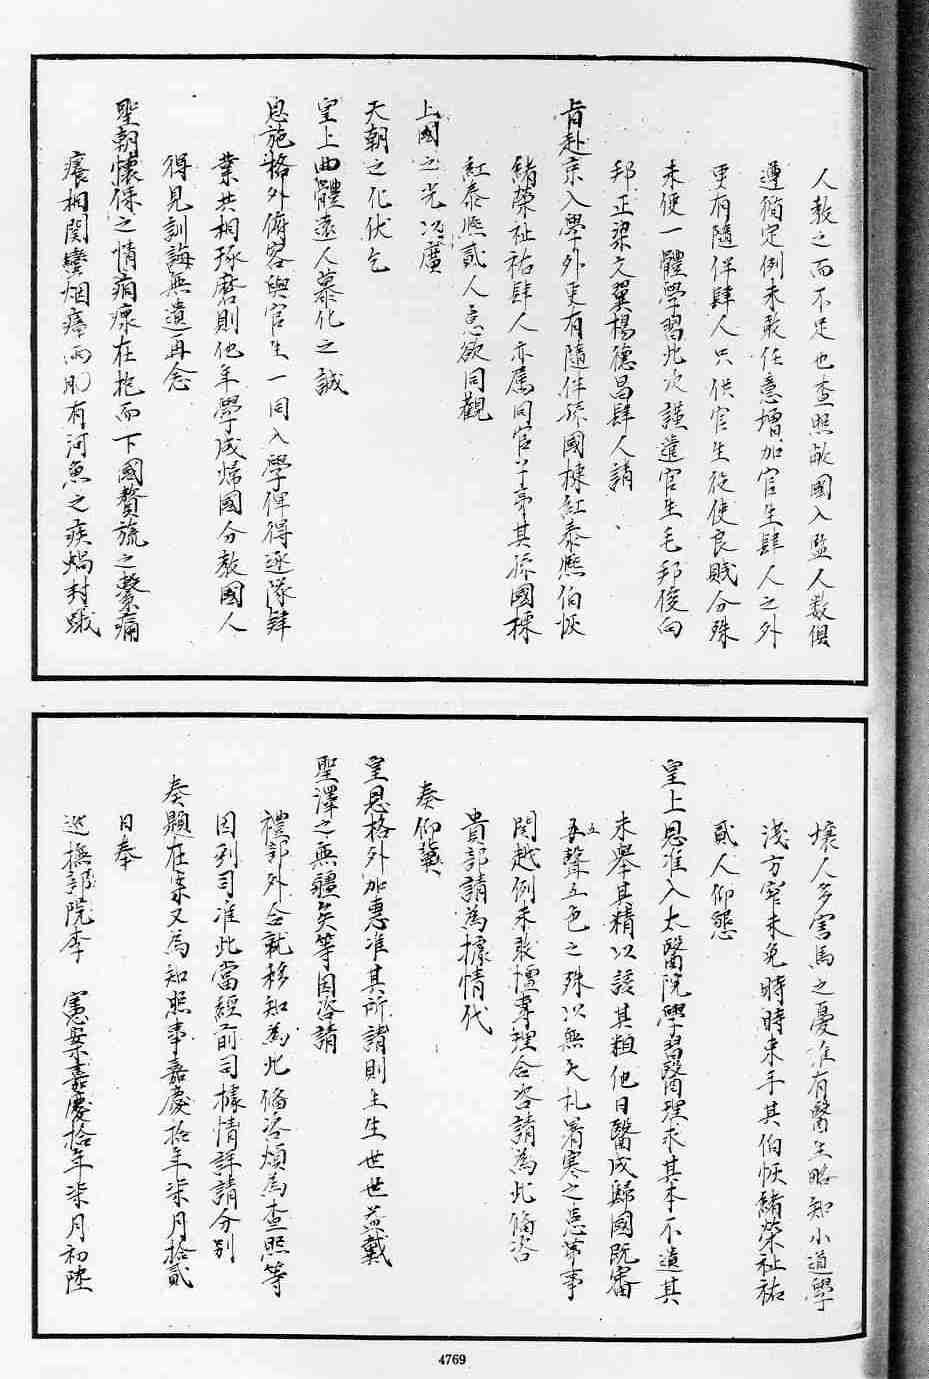 人教之而不足也查照敝國入監人數俱
遵循定例未敢任意增加官生肆人之外
更有隨伴肆人只供官生從使良賤分殊
未便一體學習此次謹遣官生毛邦俊向
邦正梁文翼楊德昌肆人請
旨赴京入學外更有隨伴孫國棟紅泰熙伯恢
緒榮祉祐肆人亦屬同官子弟其孫國棟
紅泰熙貳人意欲同觀
上國之光以廣
天朝之化伏乞
皇上曲體遠人慕化之誠
恩施格外俯容與官生一同入學俾得逐隊肄
業共相琢磨則他年學成歸國分教國人
得見訓誨無遺再念
聖朝懷保之情痌瘝在抱而下國贅旒之繫痛
癢相関蠻烟瘴雨則有河魚之疾堝封蛾
壤人多害馬之憂准有醫生略知小道學
淺方窄未免時時束手其伯恢緒榮祉祐
貳人仰懇
皇上恩准入太醫院學習醫理求其本不遺其
末舉其精以該其粗他日醫成歸國既審
五聲五色之殊以無夭札暑寒之患第事
関越例未敢擅專理合咨請為此備咨
貴部請為據情代
奏仰冀
皇恩格外加惠准其所請則生生世世益戴
聖澤之無疆矣等因咨請
禮部外合就移知為此備咨煩為查照等
因到司准此當經前司據情詳請分别
奏題在案又為知照事嘉慶拾年柒月拾貳
日奉
巡撫部院李 憲案嘉慶拾年柒月初陸
4769